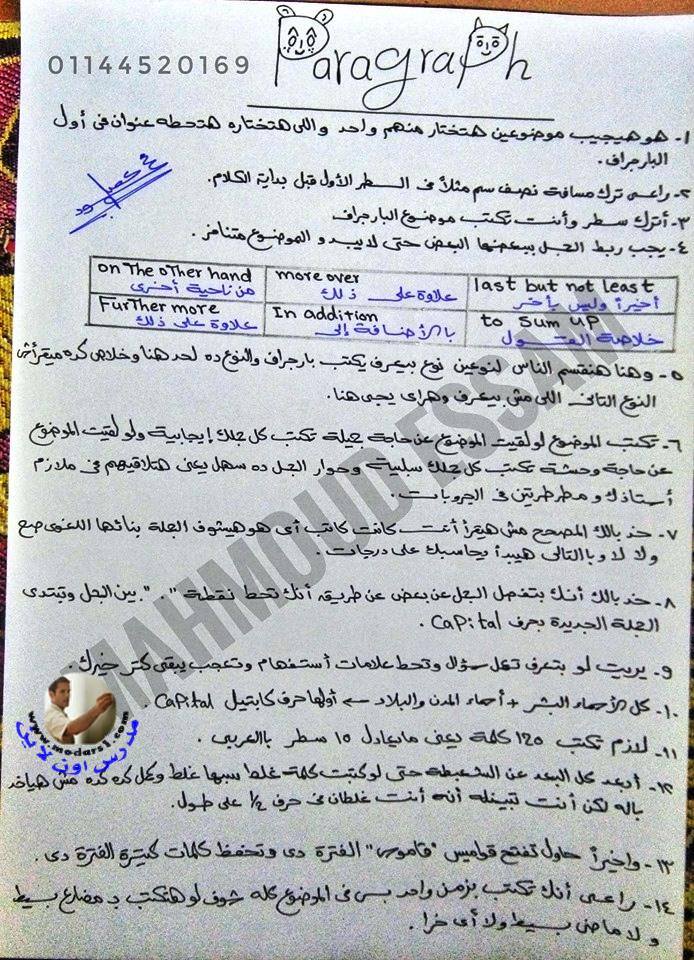 01144520169
Paragraph
١- هو هيجيب موضوعين هتختار منهم واحد واللى هتختاره هتحطه عنوان فى أول
البارجراف.
٢- راعى ترك مسافة نصف سم مثلاً فى السطر الأول قبل بداية الكلام.
٣- أترك سطر وأنت تكتب موضوع البارجراف
٤- يجب ربط الجمل ببعضها البعض حتى لا يبدو الموضوع متنافر.
on The other hand more over last but not least
من ناحية أخرى علاوة على ذلك أخيراً وليس بأخر
Further more In addition to sum up
علاوة على ذلك بالأضافة إلى خلاصة القول
٥- وهنا هنقسم الناس لنوعين نوع بيعرف يكتب بارجراف والنوع ده لحد هنا وخلاص كده ميقرأش
النوع التانى اللى مش بيعرف وهراى يجى هنا.
٦- تكتب الموضوع لو لقيت الموضوع عن حاجة جميلة تكتب كل جملك إيجابية ولو لقيت الموضوع
عن حاجة وحشة تكتب كل جملك سلبية وحوار الجمل ده سهل يعنى هتلاقيهم فى ملازم
أستاذك ومطرطرتين فى الجروبات.
٧- خد بالك المصحح مش هيقرأ أنت كاتب أى هو هيشوف الجملة بنائها اللغوى صح
ولا لا وبالتالى هيبدأ يحاسبك على درجات.
٨- خد بالك أنك بتفصل الجمل عن بعض عن طريق أنك تحط نقطة "." بين الجمل وتبتدى
الجملة الجديدة بحرف Capital.
٩- يريت لو بتعرف تعمل سؤال وتحط علامات أستفهام وتعجب يبقى كتر خيرك.
١٠- كل الأسماء البشر + أسماء المدن والبلاد ← أولها حرف كابتيل Capital.
١١- لازم تكتب 120 كلمة يعنى مايعادل ١٥ سطر بالعربى.
١٢- أبعد كل البعد عن الشخبطة حتى لو كتبت كلمة غلط سبها غلط وكمل كده كده مش هياخد
باله لكن أنت تبينله أنه أنت غلطان فى حرف ½ على طول.
١٣- واخيراً حاول تفتح قواميس "قاموس" الفترة دى وتحفظ كلمات كتيرة الفترة دى.
١٤- راعى أنك تكتب بزمن واحد بس فى الموضوع كله شوف لو هتكتب بـ مضارع بسيط
ولا ماضى بسيط ولا أى خرا.
MAHMOUD ESSAM
www.modars1.com
مدرس اون لاين